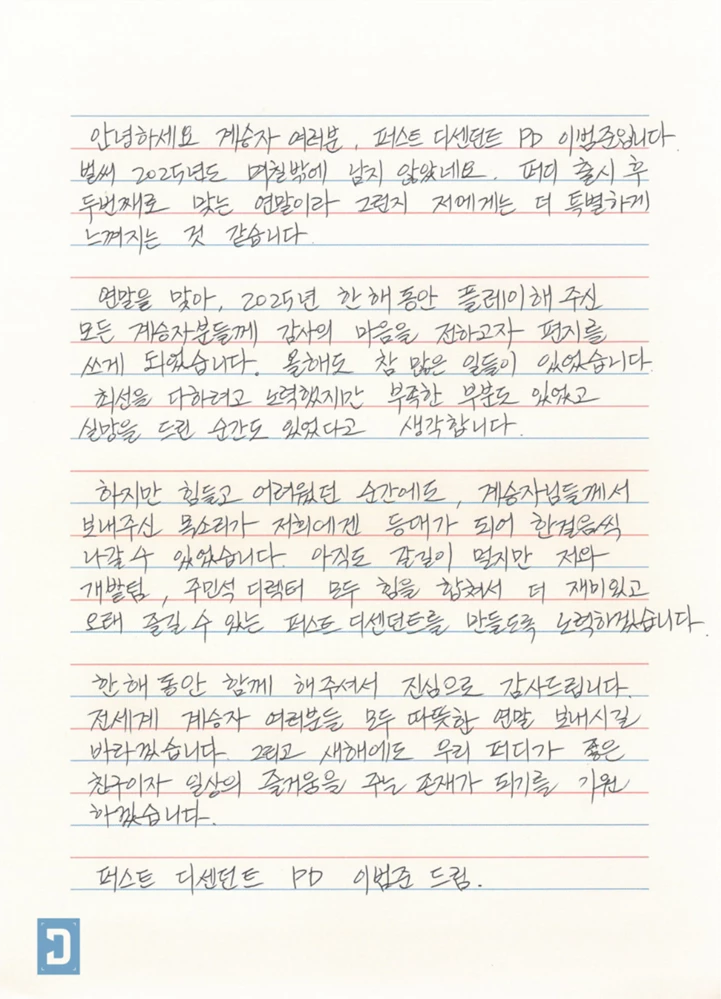 안녕하세요 계승자 여러분, 퍼스트 디센던트 PD 이범준입니다.
벌써 2025년도 며칠밖에 남지 않았네요. 퍼디 출시 후
두번째로 맞는 연말이라 그런지 저에게는 더 특별하게
느껴지는 것 같습니다.
연말을 맞아, 2025년 한 해 동안 플레이해 주신
모든 계승자분들께 감사의 마음을 전하고자 편지를
쓰게 되었습니다. 올해도 참 많은 일들이 있었습니다.
최선을 다하려고 노력했지만 부족한 부분도 있었고
실망을 드린 순간도 있었다고 생각합니다.
하지만 힘들고 어려웠던 순간에도, 계승자님들께서
보내주신 목소리가 저희에겐 등대가 되어 한걸음씩
나갈 수 있었습니다. 아직도 갈길이 멀지만 저와
개발팀, 주민석 디렉터 모두 힘을 합쳐서 더 재미있고
오래 즐길 수 있는 퍼스트 디센던트를 만들도록 노력하겠습니다.
한 해 동안 함께 해주셔서 진심으로 감사드립니다.
전세계 계승자 여러분들 모두 따뜻한 연말 보내시길
바라겠습니다. 그리고 새해에도 우리 퍼디가 좋은
친구이자 일상의 즐거움을 주는 존재가 되기를 기원
하겠습니다.
퍼스트 디센던트 PD 이범준 드림.